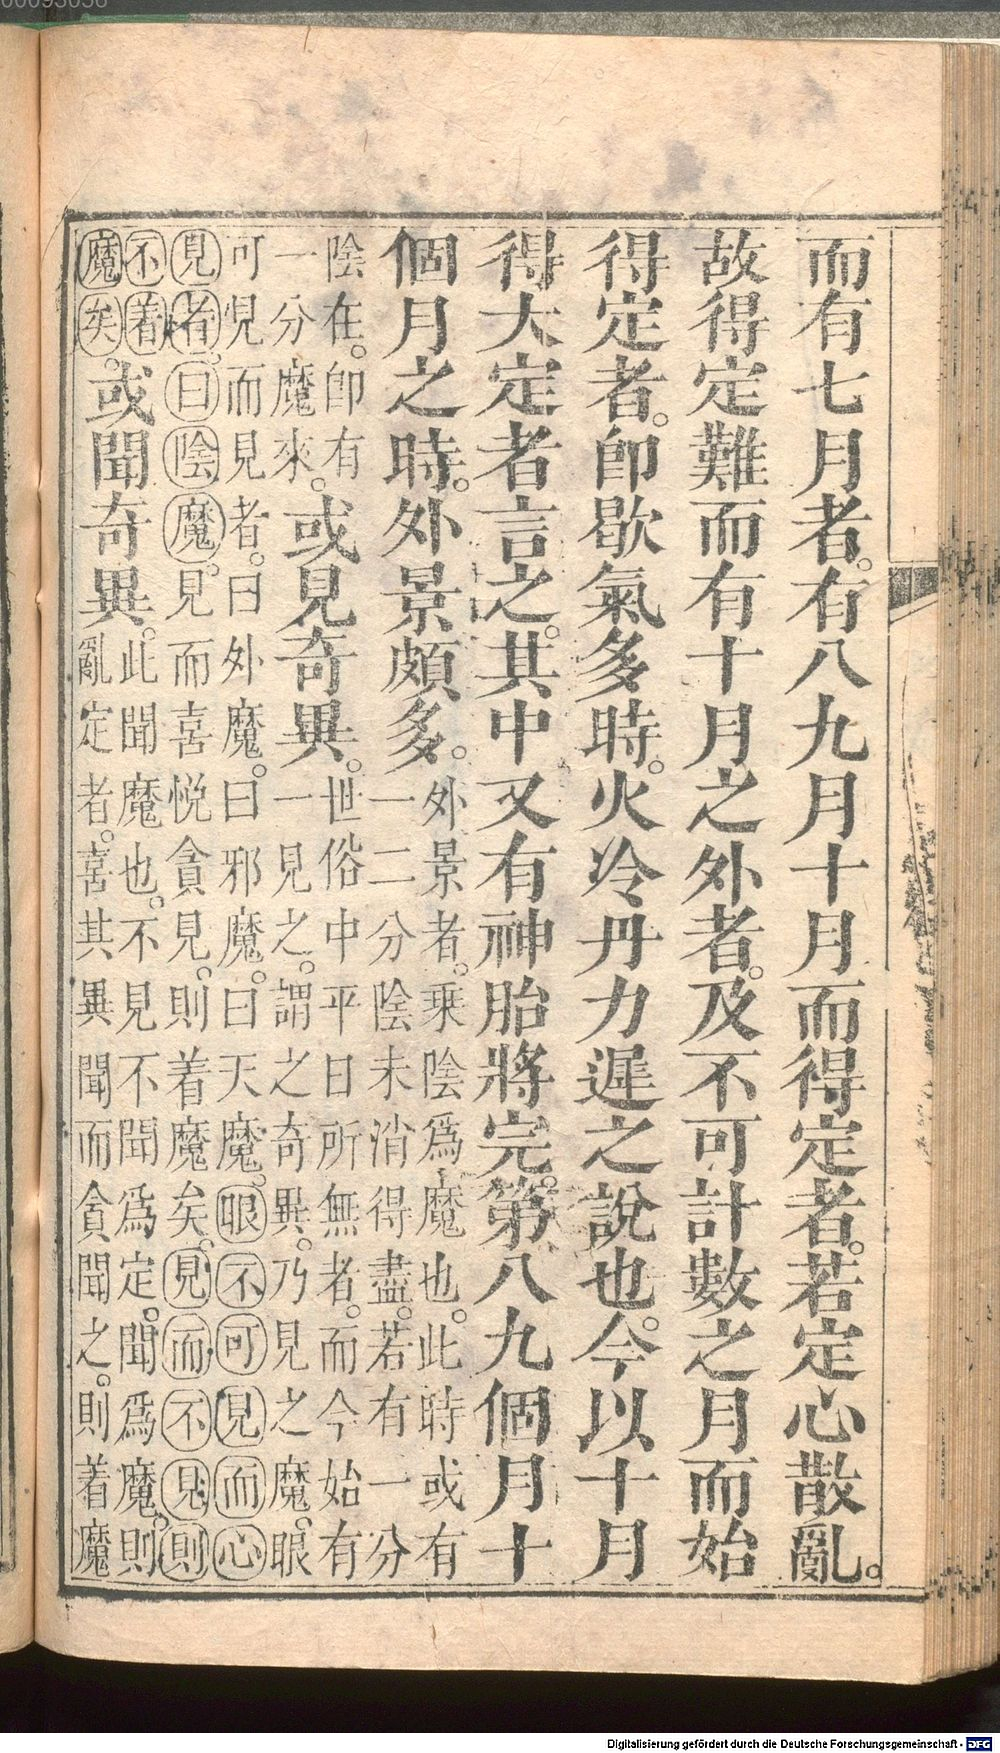 而有七月者。有八九月十月而得定者。若定心散亂。
故得定難而有十月之外者。及不可計數之月而始
得定者。卽歇氣多時。火冷丹力遲之說也。今以十月
得大定者言之。其中又有神胎將完。第八九個月十
個月之時。外景頗多。
外景者。乗陰爲魔也。此時或有
一二分陰未消得盡。若有一分
陰在。卽有
一分魔來。
或見奇異。
世俗中平日所無者。而今始有
一見之。謂之奇異。乃見之魔。眼
可見而見者。曰外魔。曰邪魔。曰天魔。眼不可見而心
見者。曰陰魔。見而喜悅貪見。則着魔矣。見而不見則
不着
魔矣。
或聞奇異。
此聞魔也。不見不聞爲定。聞爲魔。則
亂定者。喜其異聞而貪聞之。則着魔
Digitalisierung gefördert durch die Deutsche Forschungsgemeinschaft - DFG